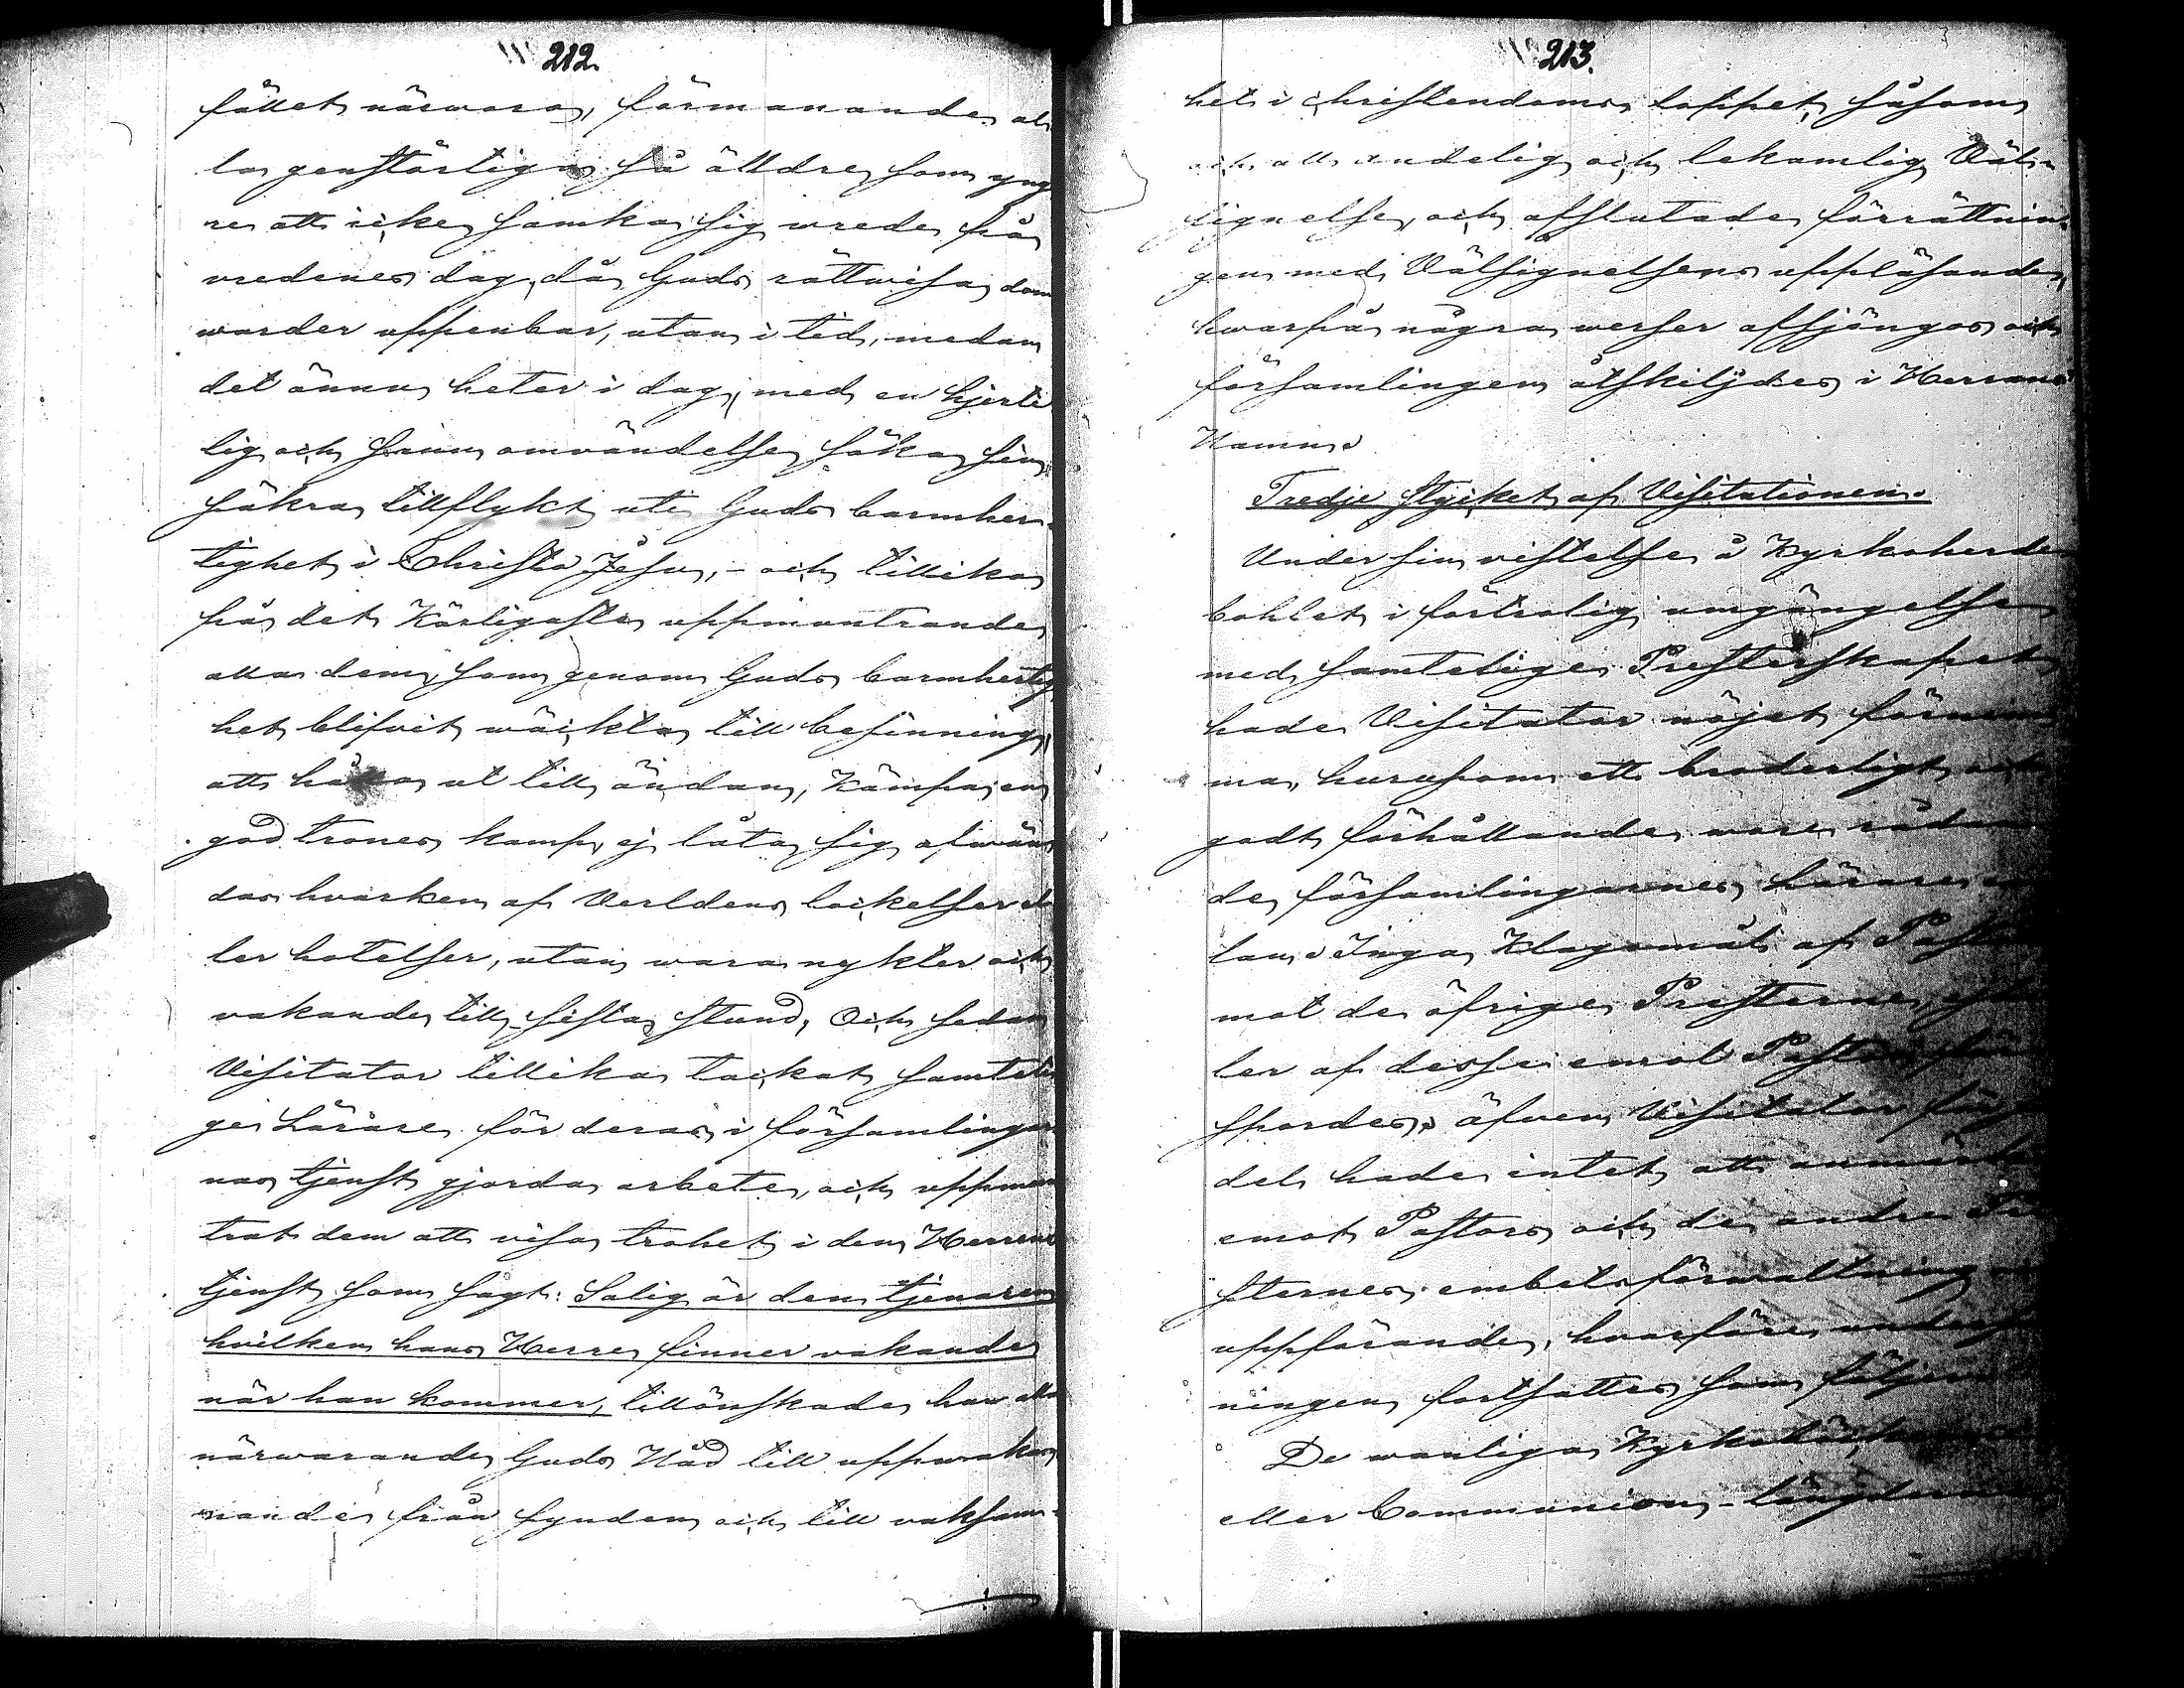 212.
fallet närwara, förmanande al-
la genstörtiga så älldre som yng
re att icke samka sig wrede på
vredenes dag, då Guds rättwisa dom
warder uppenbar, utan i tid, medan
det ännu heter i dag, med en hjerte
lig och sann omvändelse söka sin
säkra tillflykt uti Guds barmher-
tighet i Christo Jesu, - och tillika
på det Kärligaste uppmuntrande
alla dem, som genom Guds barmhertig
het blifvit wäckta till besinning,
att hålla ut till ändan, Kämpa en
god trones kamp, ej låta sig afwän
das hvarken af Verldens lockelser el
ler hotelser, utan wara nykter och
vakande till sista stund, Och sedan
Visitator tillika tackat samteli
ge Lärare för deras i församlingar
nas tjenst gjorda arbete, och uppmun
trat dem att visa trohet i dem Herrens
tjenst som sagt: Salig är den tjenaren
hvilken hans Herre finner vakande
när han kommer, tillönskade han alla
närwarande Guds Nåd till uppwak
nande från synden och till vaksam-
213.
het i christendoms loppet, såsom
och all andelig och lekamlig Väl-
signelse, och afslutade förrättnin-
gen med Välsignelsens uppläsande,
hvarpå några werser afsjöngos och
församlingen åtskiljdes i Herrans
Namn.
Tredje stycket af Visitationen.
Under sin vistelse å Kyrkoherde
bohlet i förtrolig umgängelse
med samtelige Presterskapet
hade Visitator nöjet förnim
ma, hurusom ett broderligt och
godt förhållande ware rådan
de församlingarnes lärare e
lan. Inga Klagomål af Past
mot de öfrige Presterne, el
ler af desse emot Pastor för
spordes, äfven Visitator för
del hade intet att anmärka
emot Pastors och de andre Pre
sternes embets förwaltning
uppförande, hvarföre under
ningen fortsattes som följer
De wanliga
eller Communion-längderne